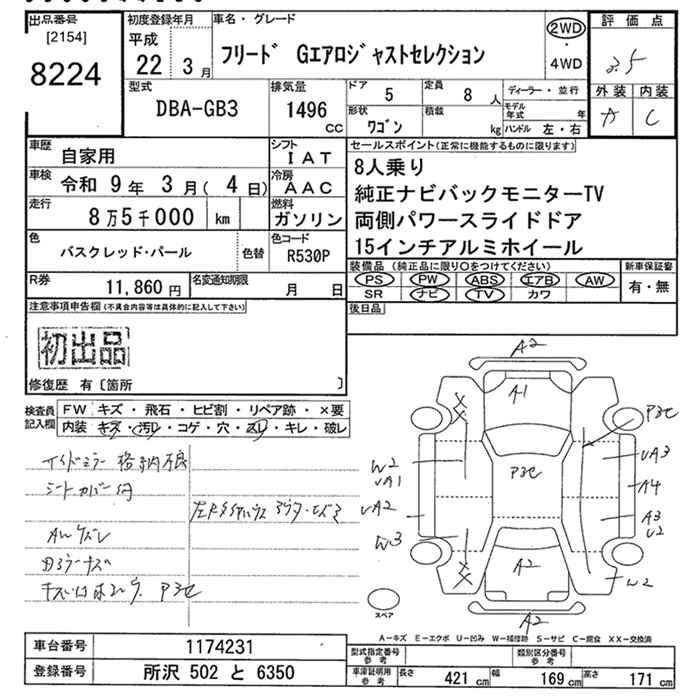 出品番号
[2154]
8224
初度登録年月
平成
22年 3月
車名・グレード
フリード Gエアロジャストセレクション
2WD
・
4WD
評価点
3.5
外装 内装
A C
型式
DBA-GB3
排気量
1496
CC
ドア
5
定員
8 人
形状
ワゴン
積載
kg
ディーラー・並行
モデル年式 年
ハンドル 左・右
車歴
自家用
シフト
IAT
車検
令和 9年 3月( 4日)
冷房
AAC
走行
8万5千000 km
燃料
ガソリン
色
バスクレッド・パール
色替
色コード
R530P
R券
11,860 円
名変通知期限
月 日
セールスポイント(正常に機能するものに限ります)
8人乗り
純正ナビバックモニターTV
両側パワースライドドア
15インチアルミホイール
装備品 (純正品に限り○をつけてください)
PS PW ABS エアB AW
SR ナビ TV カワ
新車保証書
有・無
後日品
注意事項申告欄(不具合内容等は具体的に記入して下さい)
初出品
修復歴 有〔箇所 〕
検査員記入欄
FW キズ ・ 飛石 ・ ヒビ割 ・ リペア跡 ・ ×要
内装 キズ ・ 汚レ ・ コゲ ・ 穴 ・ スレ ・ キレ ・ 破レ
シートカバー付
AWスレ
A2
A1
P3C
P3C
W2
UA1
UA3
A4
UA2
A3
U2
W3
W2
A2
A2
スペア
A－キズ E－エクボ U－凹み W－補修跡 S－サビ C－腐食 XX－交換済
車台番号
1174231
登録番号
所沢 502 と 6350
型式指定番号
参考
類別区分番号
参考
車庫証明用
参考
長さ 421 cm
幅 169 cm
高さ 171 cm